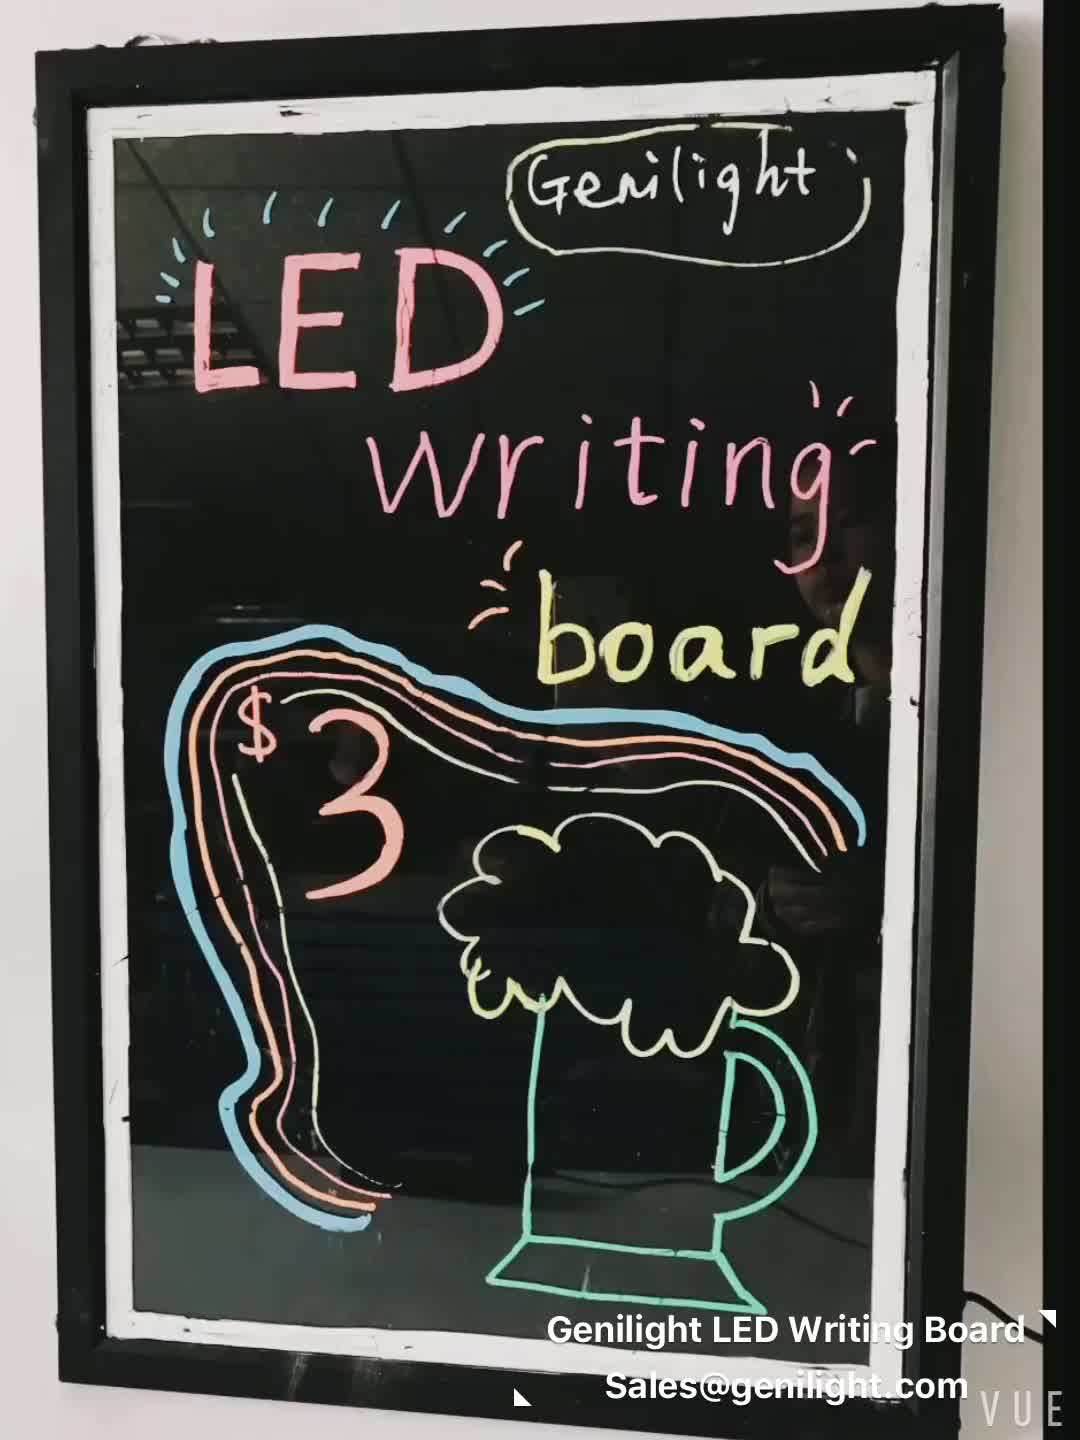 Genilight
LED
writing
board
$3
Genilight LED Writing Board
Sales@genilight.com
VUE